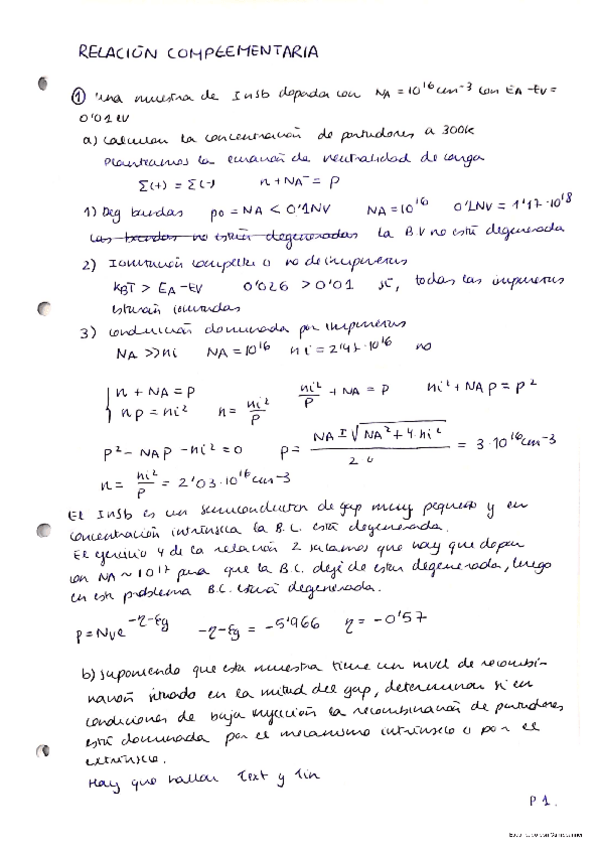 RELACIÓN COMPLEMENTARIA
① Una muestra de InSb dopada con NA = 10^16 cm^-3 con EA - EV =
0'01 eV
a) calcular la concentración de portadores a 300K
Planteamos la ecuación de neutralidad de carga
Σ(+) = Σ(-)    n + NA^- = p
1) Deg bandas    po = NA < 0'1NV    NA = 10^16    0'1NV = 1'17·10^18
las bandas no están degeneradas la B.V no está degenerada
2) Ionización completa o no de impurezas
KBT > EA - EV    0'026 > 0'01    sí, todas las impurezas
estarán ionizadas
3) conducción dominada por impurezas
NA >> ni    NA = 10^16    ni = 2'47·10^16    no
{ n + NA = p    ni²/p + NA = p    ni² + NA p = p²
{ np = ni²    n = ni²/p
p² - NAp - ni² = 0    p = (NA ± √(NA² + 4·ni²)) / 2 = 3·10^16 cm^-3
n = ni²/p = 2'03·10^16 cm^-3
El InSb es un semiconductor de gap muy pequeño y en
concentración intrínseca la B.C. está degenerada.
El ejercicio 4 de la relación 2 sacamos que hay que dopar
con NA ~ 10^17 para que la B.C. deje de estar degenerada, luego
en este problema B.C. estará degenerada.
p = NVe^(-η-εg)    -η-εg = -5'966    η = -0'57
b) Suponiendo que esta muestra tiene un nivel de recombi-
nación situado en la mitad del gap, determinar si en
condiciones de baja inyección la recombinación de portadores
está dominada por el mecanismo intrínseco o por el
extrínseco.
Hay que hallar τext y τin
P 1.